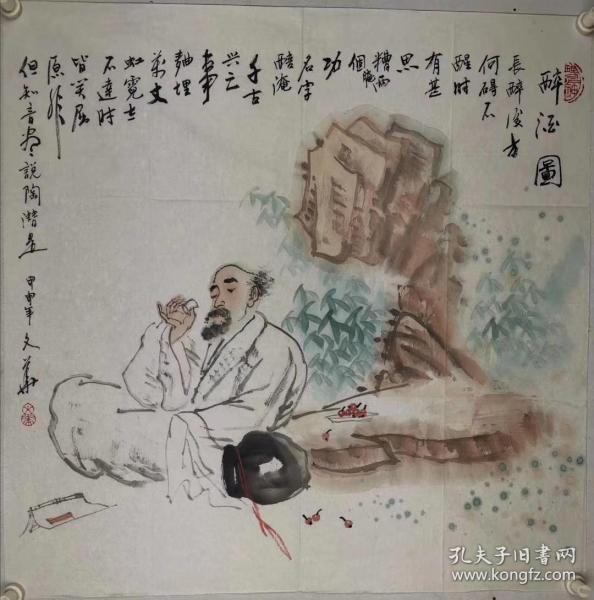 醉酒圖
長醉後方
何碍不
醒时
有甚
思
糟两
個腌
功
名字
醅淹
千古
兴亡
事
麯埋
萬丈
虹霓志
不達时
皆笑屈
原非
但知音尽説陶潜是
甲申年 文华
孔夫子旧书网
www.kongfz.com